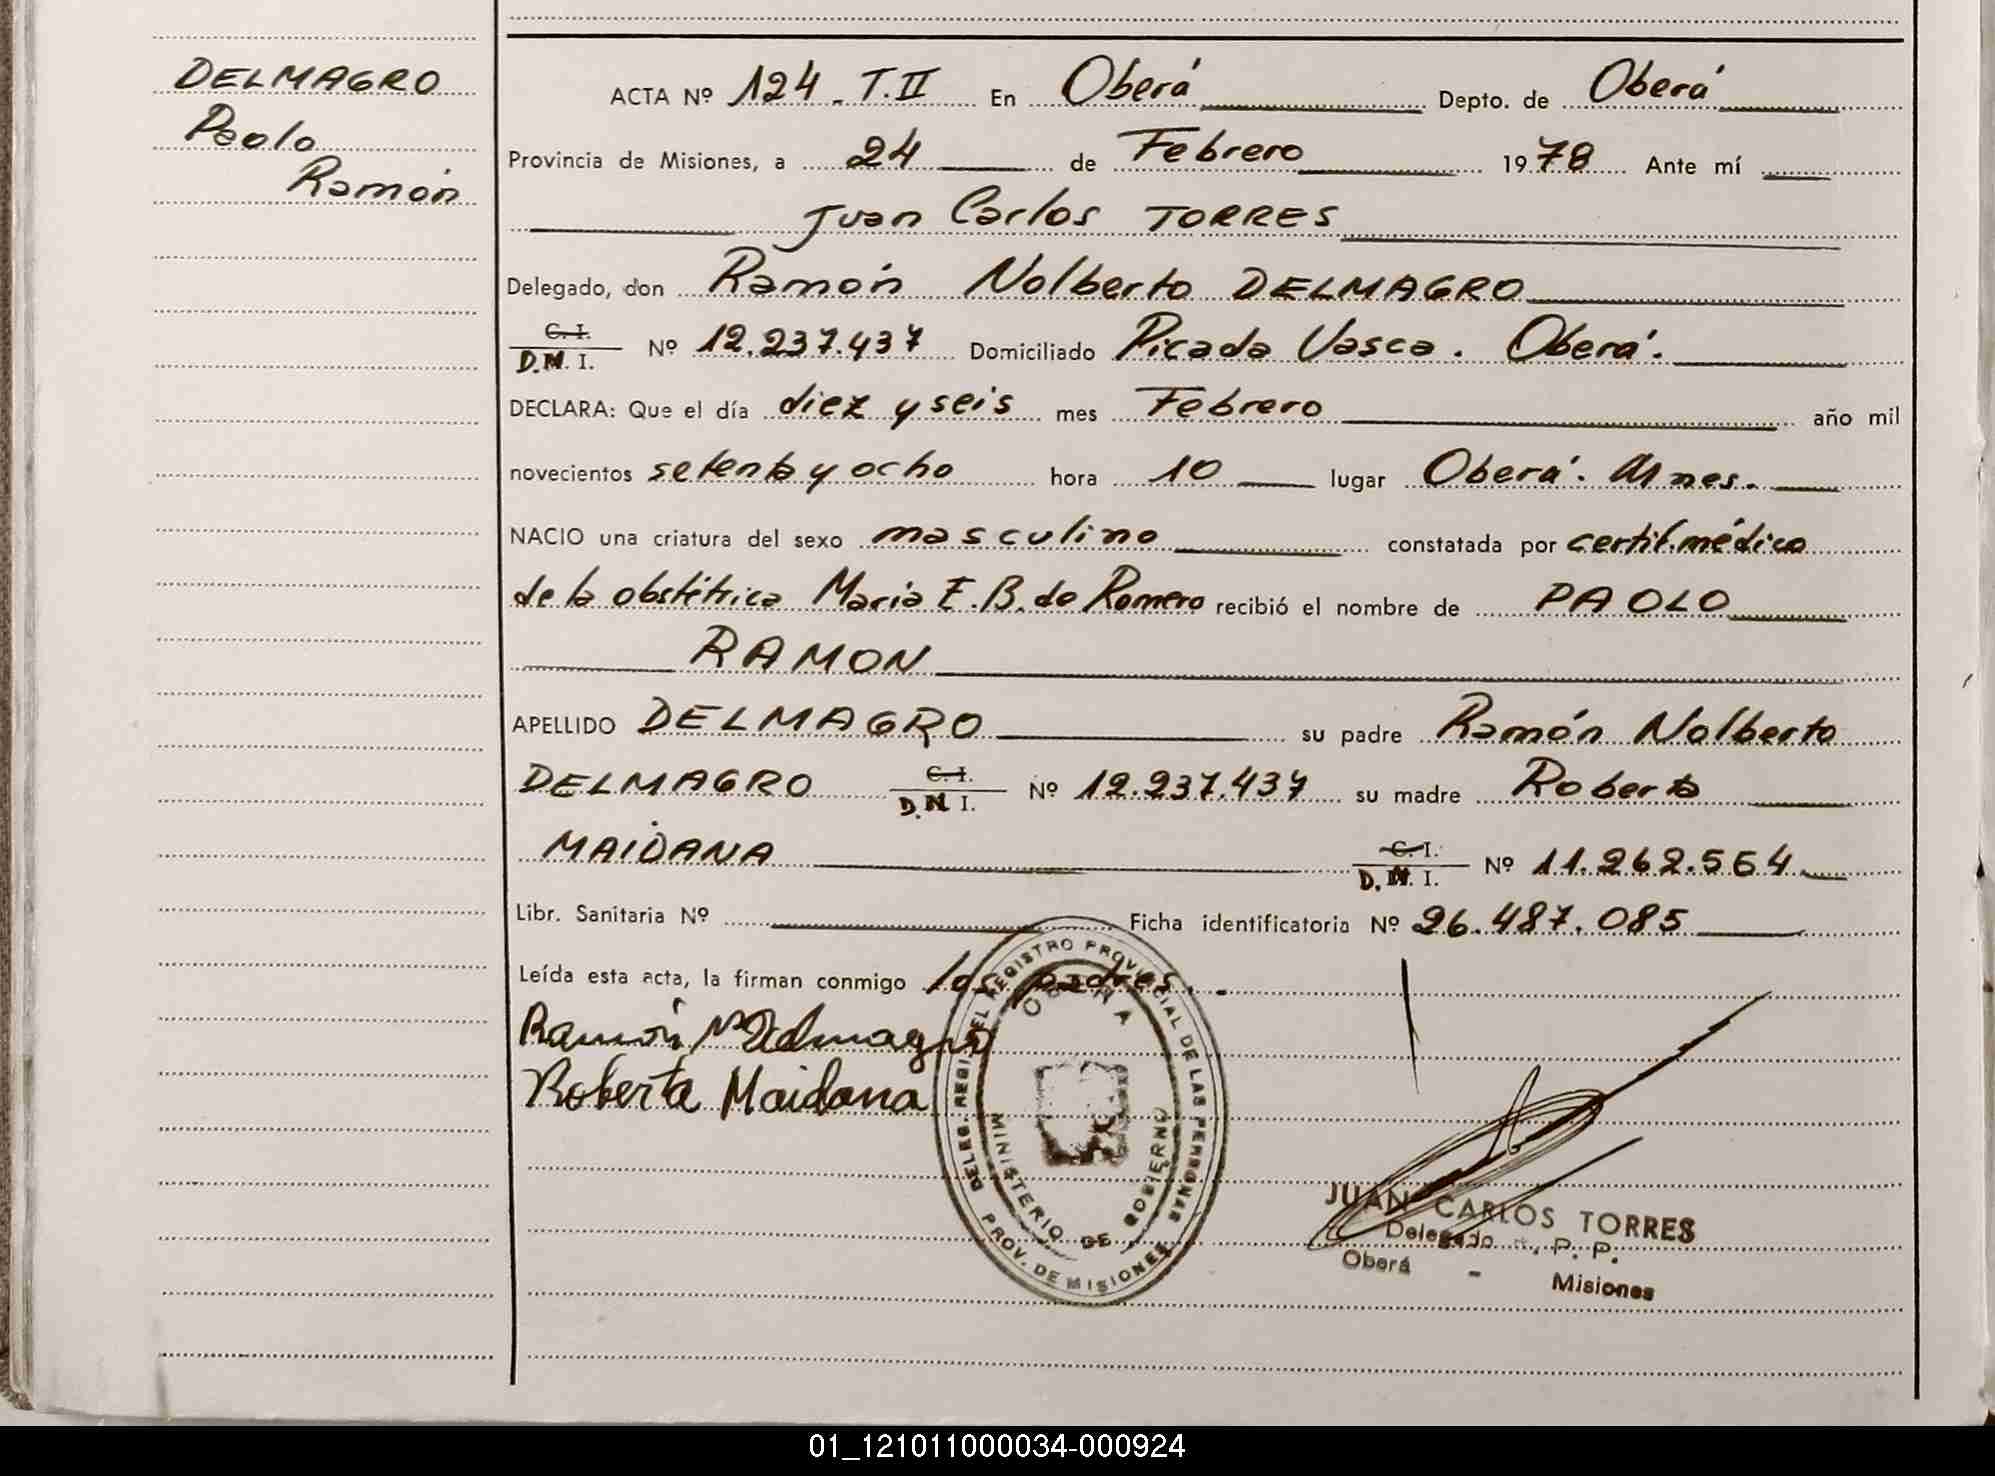 DELMAGRO
Paolo
Ramón
ACTA Nº 124. T.II En Oberá Depto. de Oberá
Provincia de Misiones, a 24 de Febrero 1978 Ante mí
Juan Carlos TORRES
Delegado, don Ramón Nolberto DELMAGRO
C. I.
D.N. I. Nº 12.237.437 Domiciliado Picada Vasca. Oberá.
DECLARA: Que el día diez y seis mes Febrero año mil
novecientos setenta y ocho hora 10 lugar Oberá. Mnes.
NACIO una criatura del sexo masculino constatada por certif. médico
de la obstétrica Maria E. B. de Romero recibió el nombre de PAOLO
RAMON
APELLIDO DELMAGRO su padre Ramón Nolberto
DELMAGRO C. I. D.N. I. Nº 12.237.437 su madre Roberta
MAIDANA C. I. D.N. I. Nº 11.262.564
Libr. Sanitaria Nº Ficha identificatoria Nº 26.487.085
Leída esta acta, la firman conmigo los padres.
Ramón N Delmagro
Roberta Maidana
DELEG. REGI. DEL REGISTRO PROVINCIAL DE LAS PERSONAS
OBERA
MINISTERIO DE GOBIERNO
PROV. DE MISIONES
JUAN CARLOS TORRES
Delegado R. P. P.
Oberá - Misiones
01_121011000034-000924